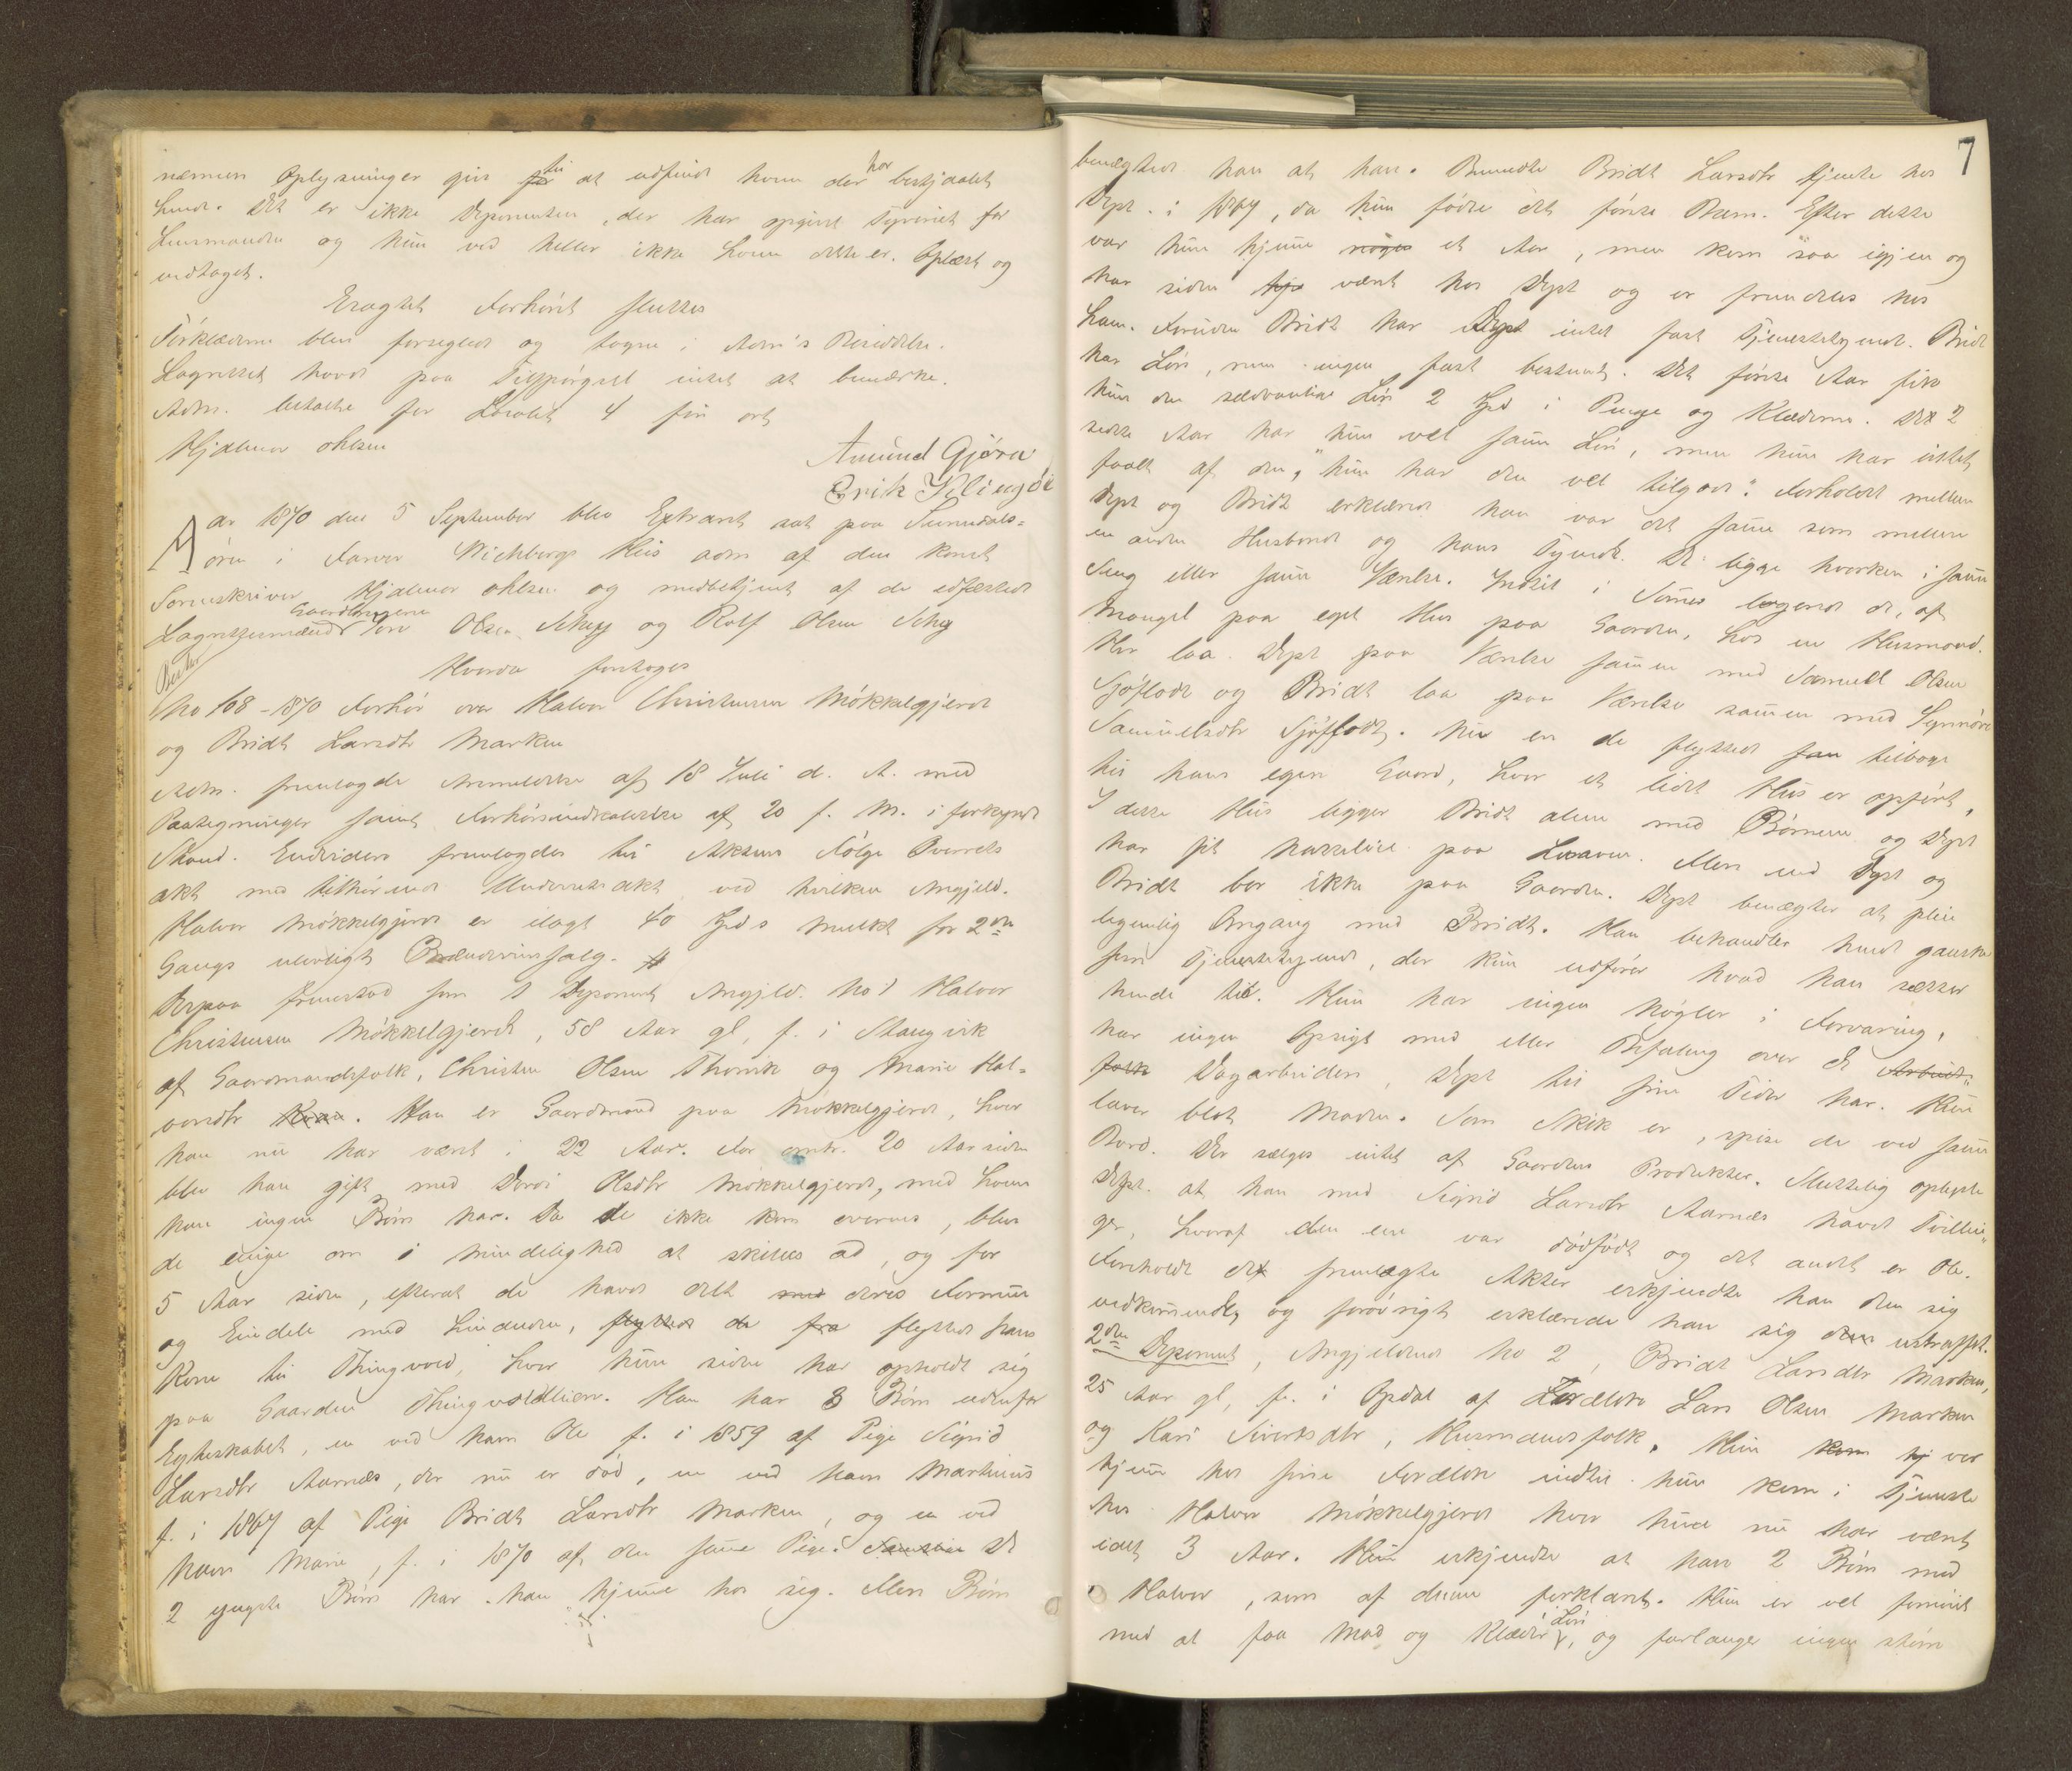 nærmere Oplysninger giv til at udfinde hvem der har bestjaalet
hende. Det er ikke Deponenten, der har opgivet Tyveriet for
Lensmanden og hun ved heller ikke hvem dette er. Oplæst og
vedtaget.
Eragtet Forhøret sluttes
Tørklæderne blev forseglet og tagne i Adm's Besiddelse.
Lagrettet havde paa Tilspørgsel intet at bemærke.
Adm. betalte for Localet 4 fire ort
Hjalmar Ohlsen
Amund Gjøra
Erik
Aar 1870 den 5 September blev Extraret sat paa Sunndals-
øren i Farver Wichbergs Hus adm af den konst
Sorenskriver Hjalmar Ohlsen og medbetjent af de edfæstede
Lagrettesmænd Gaardbrugerne Tore Olsen Schey og Rolf Olsen Schey
Hvorda foretoges
No 168 - 1870 Forhør over Halvor Christensen Møkkelgjerd
og Bridt Larsdtr Marken
Adm. fremlagde Anmeldelse af 18 Juli d. A. med
Paategninger samt Forhørsindkaldelse af 20 f. M. i forkyndt
Stand. Endvidere fremlagdes til Aktens Følge Overrets
akt med tilhørende Underretsakt ved hvilken Angjeld.
Halvor Møkkelgjerd er ilagt 40 Spds Mulkt for 2den
Gangs ulovligt Brændevinssalg.
Derpaa fremstod som 1 Deponent Angjeld. No 1 Halvor
Christensen Møkkelgjerd, 58 Aar gl, f. i Stangvik
af Gaardmandsfolk, Christen Olsen Thorvik og Marie Hal-
vorsdtr. Han er Gaardmand paa Møkkelgjerd, hvor
han nu har været i 22 Aar. For omtr. 20 Aar siden
blev han gift med Dorei Olsdtr Møkkelgjerd, med hvem
han ingen Børn har. Da de ikke kom overens, blev
de enige om i Mindelighed at skilles ad, og for
5 Aar siden, efterat de havde delt med deres Formue
og Eindele med hinanden, flyttede de fra flyttede hans
Kone til Thingvold, hvor hun siden har opholdt sig
paa Gaarden Thingvoldlien. Han har 3 Børn udenfor
Egteskabet, en ved Navn Ole f. i 1859 af Pige Sigrid
Larsdtr Aarnæs, der nu er død, en ved Navn Martinus
f. i 1867 af Pige Bridt Larsdtr Marken, og en ved
Navn Marie, f. i 1870 af den samme Pige. De
2 yngste Børn har han hjemme hos sig. Flere Børn
7
benægtede han at have. Bemeldte Bridt Larsdtr tjente hos
Dept. i 1867, da hun fødte det første Barn. Efter dette
var hun hjemme noget et Aar, men kom saa igjen og
har siden tje været hos Dept og er fremdeles hos
ham. Foruden Bridt har Dept intet fast Tjenestetyende. Bridt
har Løn, men ingen fast bestemt. Det første Aar fik
hun den sædvanlige Løn 2 Spd i Penge og Klæderne. Det 2
sidste Aar har hun vel samme Løn, men hun har intet
faaet af den, "hun har den vel tilgode". Forholdet mellem
Dept og Bridt erklærede han var det samme som mellem
en anden Husbond og hans Tyende. De ligge hverken i samme
Seng eller samme Værelse. Indtil i Sommer laae de, af
Mangel paa eget Hus paa Gaarden, hos en Husmand.
Her laa Dept paa Værelse sammen med Samuel Olsen
Sjøflodt og Bridt laa paa Værelse sammen med Synnøve
Samuelsdtr Sjøflodt. Nu er de flyttede tilbage
til hans egen Gaard, hvor et lidet Hus er opført,
I dette Hus ligger Bridt alene med Børnene og Dept
har sit Natteleie paa Laaven. Flere end Dept og
Bridt bor ikke paa Gaarden. Dept benægter at pleie
legemlig Omgang med Bridt. Han behandler hende ganske
som Tjenestetyende, der kun udfører hvad han sætter
hende til. Hun har ingen Nøgler i Forvaring,
har ingen Opsigt med eller Befaling over de Arbeids-
folk Dagarbeidere, Dept til sine Tider har. Hun
laver blot Maden. Som Skik er, spise de ved samme
Bord. Der sælges intet af Gaardens Produkter. Sluttelig oplyste
Dept. at han med Sigrid Larsdtr Aarnæs havde Tvillin-
ger, hvoraf den ene var dødfødt og det andet er Ole.
Foreholdt de fremlagte Akter erkjendte han dem sig
vedkommende, og forøvrigt erklærede han sig ustraffet.
2den Deponent, Angjeldende No 2, Bridt Larsdtr Marken,
25 Aar gl, f. i Opdal af Forældre Lars Olsen Marken
og Kari Sivertsdtr, Husmandsfolk. Hun kom hj var
hjemme hos sine Forældre indtil hun kom i Tjeneste
hos Halvor Møkkelgjerd hvor hun nu har været
idet 3 Aar. Hun erkjendte at have 2 Børn med
Halvor, som af denne forklaret. Hun er vel fornøiet
med at faa Mad og Klæder Løn, og forlanger ingen større